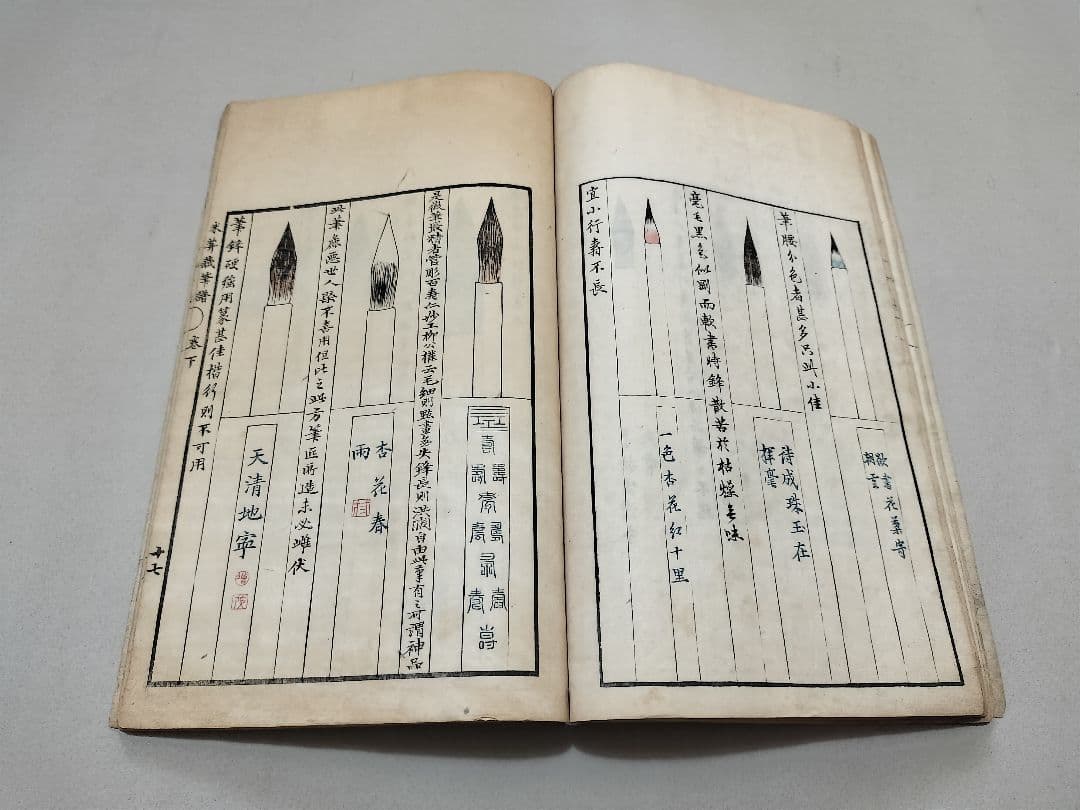 筆腰分色者甚多只此小佳
欲書花葉寄
朝雲
毫毛黑色似剛而軟書時鋒散苦於枯燥無味
詩成珠玉在
揮毫
宜小行壽不長
一色杏花紅十里
是徽筆最精者管彫百壽亦妙工柳公權云毛細則點畫多失鋒長則洪潤自由此筆有之可謂神品
壽
此筆為惡世人最不喜用但比之此方筆匠所造未必雌伏
杏花春
雨
筆鋒硬強用篆甚佳楷行則不可用
天清地寧
米葊藏筆譜
卷下
十七